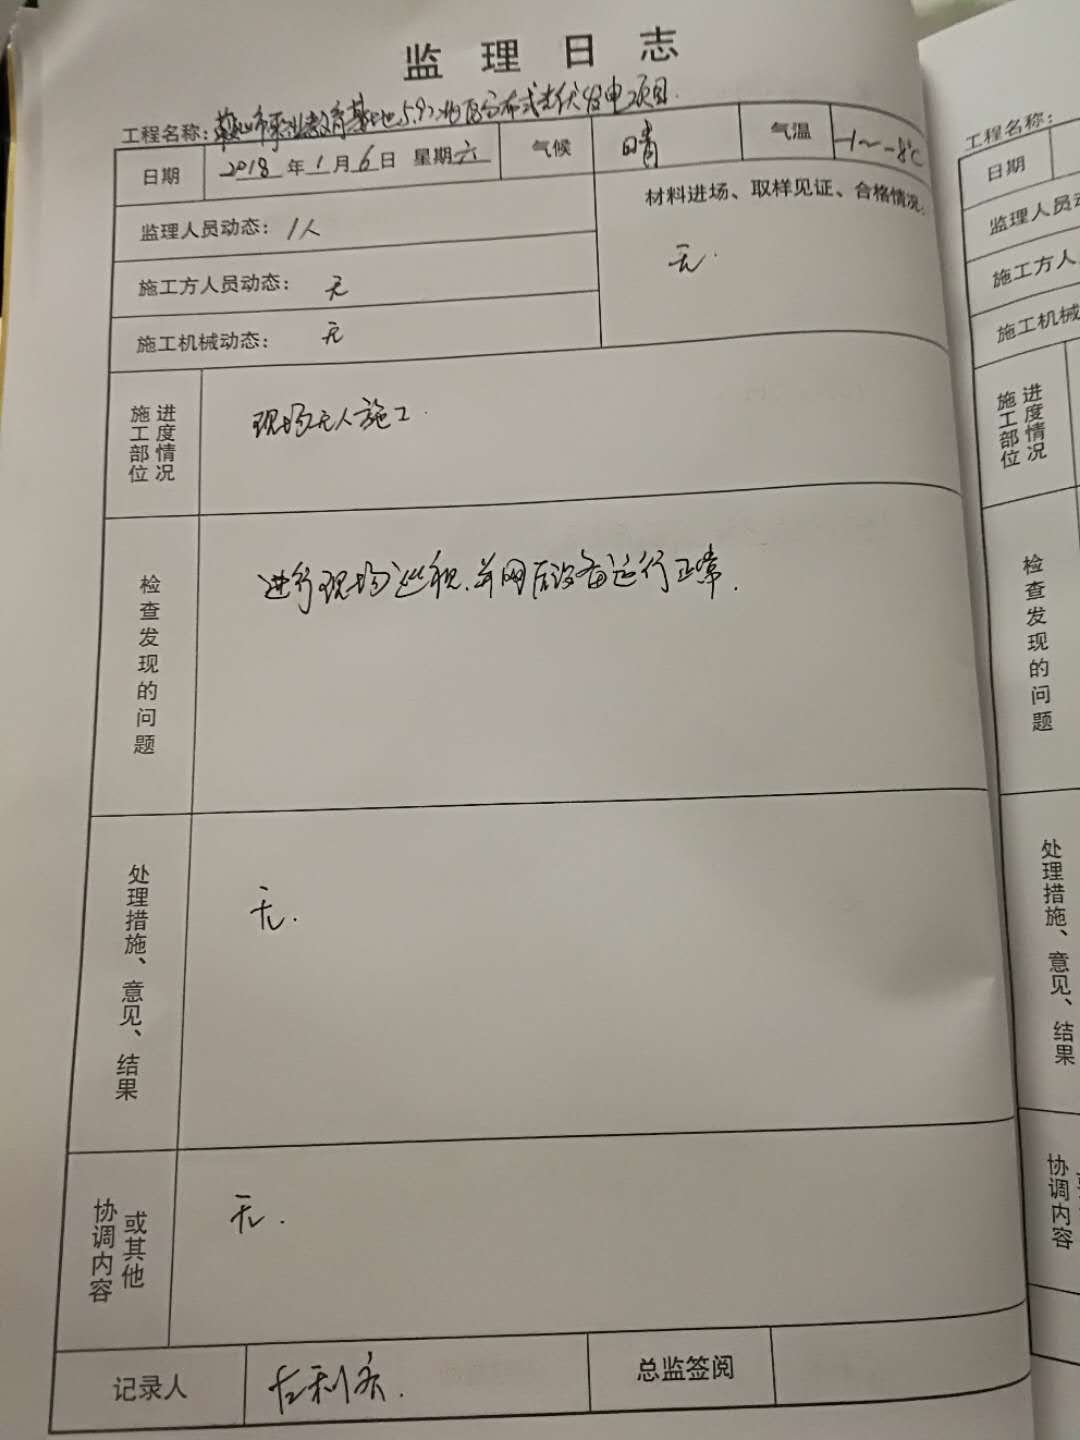 监理日志
工程名称:鞍山市职业教育基地5.9兆瓦分布式光伏发电项目.
日期 2018年1月6日 星期六 气候 晴 气温 -1~-8℃
监理人员动态: 1人
材料进场、取样见证、合格情况:
无.
施工方人员动态: 无
施工机械动态: 无
施工部位进度情况
现场无人施工.
检查发现的问题
进行现场巡视.并网后设备运行正常.
处理措施、意见、结果
无.
协调内容或其他
无.
记录人 左利
总监签阅
工程名称:
日期
监理人员
施工方人
施工机械
施工部位进度情况
检查发现的问题
处理措施、意见、结果
协调内容